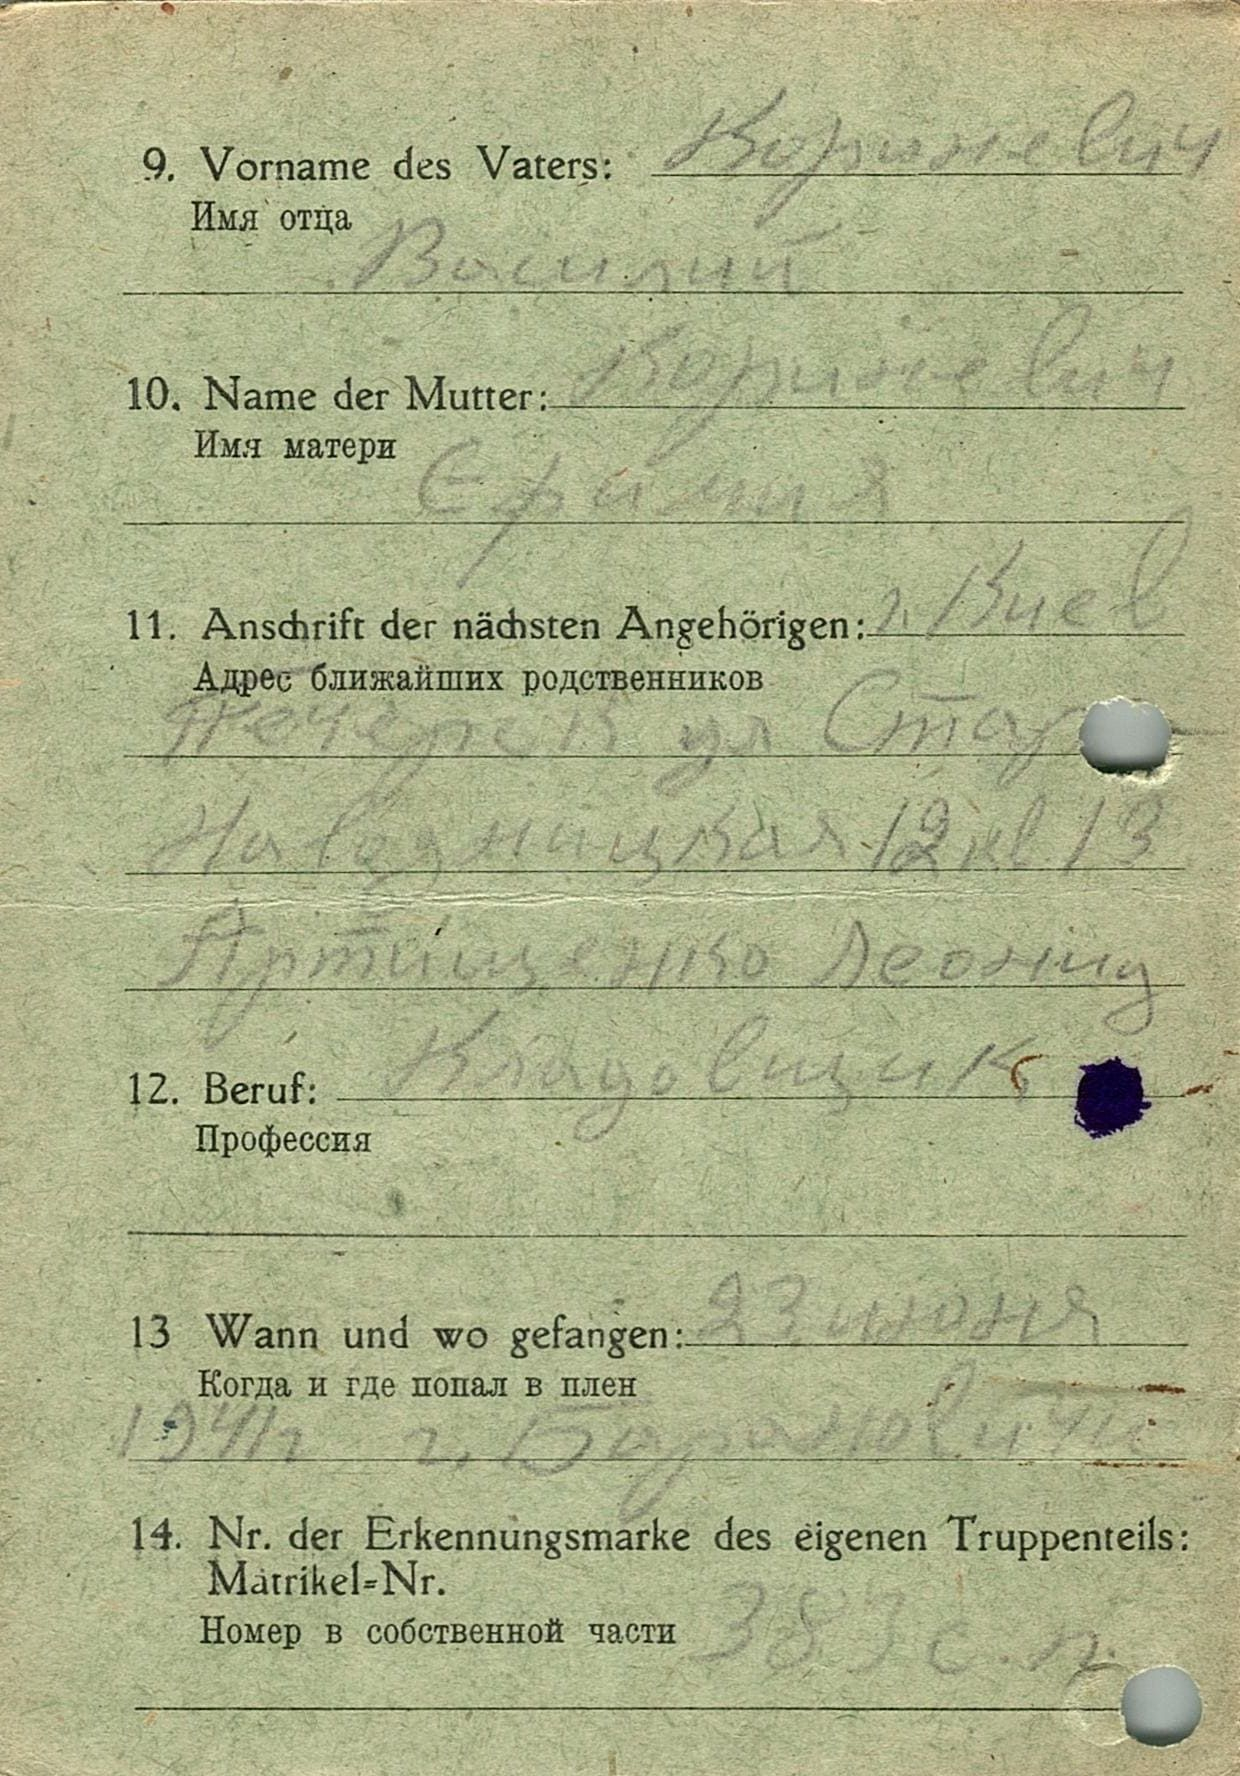 9. Vorname des Vaters: Кориневич
Имя отца
Василий
10. Name der Mutter: Кориневич
Имя матери
11. Anschrift der nächsten Angehörigen: г. Киев
Адрес ближайших родственников
Печерск ул Стар
12 кв 13
Леонид
12. Beruf: Кладовщик
Профессия
13 Wann und wo gefangen: 23 июня
Когда и где попал в плен
1941 г г. Барановичи
14. Nr. der Erkennungsmarke des eigenen Truppenteils:
Matrikel=Nr.
Номер в собственной части 383 с. п.